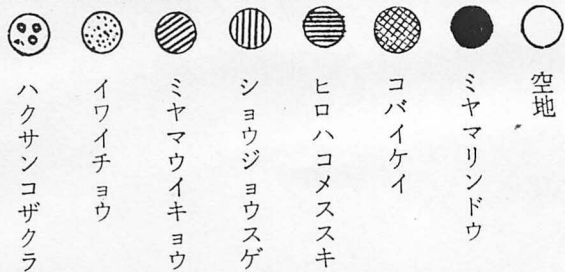 空地
ミヤマリンドウ
コバイケイ
ヒロハコメススキ
ショウジョウスゲ
ミヤマウイキョウ
イワイチョウ
ハクサンコザクラ